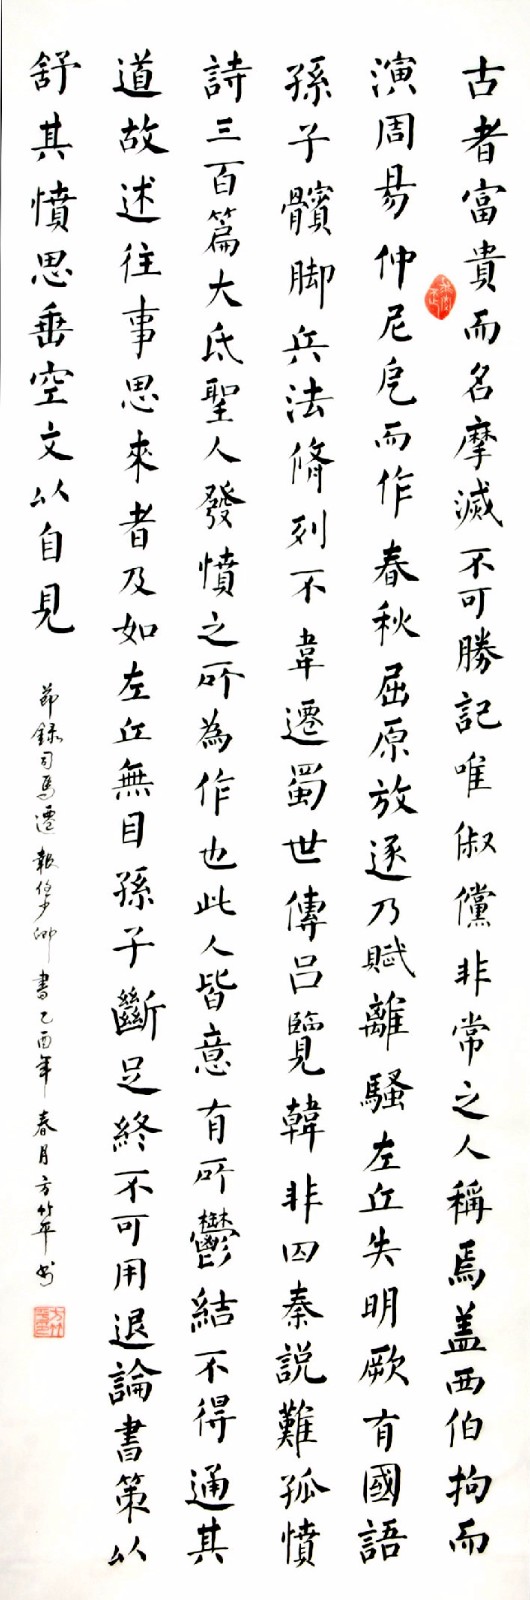 古者富貴而名摩滅不可勝記唯俶儻非常之人稱焉盖西伯拘而
演周易仲尼戹而作春秋屈原放逐乃賦離騷左丘失明厥有國語
孫子髕脚兵法脩列不韋遷蜀世傳呂覽韓非囚秦説難孤憤
詩三百篇大氐聖人發憤之所為作也此人皆意有所鬱結不得通其
道故述往事思來者及如左丘無目孫子斷足終不可用退論書策以
舒其憤思垂空文以自見
節錄司馬遷報任少卿書乙酉年春月方竹平书